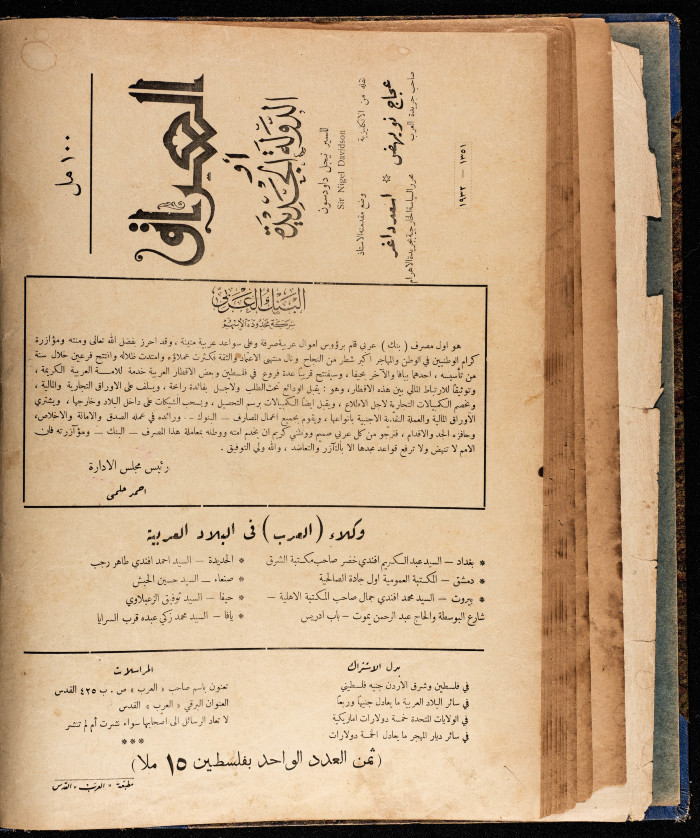 العراق
أو
الدولة الجديدة
١٠٠ مل
للسير نيجل داودسون
Sir Nigel Davidson
نقله من الانكليزية
عجاج نويهض
صاحب جريدة العرب
وضع مقدمته الاستاذ
اسعد داغر
محرر السياسة الخارجية بجريدة الاهرام
١٣٥١ — ١٩٣٢
البنك العربي
شركة محدودة الاسهم
هو اول مصرف ( بنك ) عربي قام برؤوس اموال عربية صرفة وعلى سواعد عربية متينة ، وقد احرز بفضل الله تعالى ومنته ومؤازرة
كرام الوطنيين في الوطن والمهاجر اكبر شطر من النجاح ونال منتهى الاعتماد والثقة فكثرت عملاؤه وامتدت ظلاله وافتتح فرعين خلال سنة
من تأسيسه ، احدهما بيافا والآخر بحيفا ، وسيفتتح قريبا عدة فروع في فلسطين وبعض الاقطار العربية خدمة للامة العربية الكريمة ،
وتوثيقا للارتباط المالي بين هذه الاقطار ، وهو : يقبل الودائع تحت الطلب ولاجل بفائدة رابحة ، ويسلف على الاوراق التجارية والمالية ،
ويخصم الكمبيالات التجارية لاجل الاطلاع ، ويقبل ايضا الكمبيالات برسم التحصيل ، ويسحب الشيكات على داخل البلاد وخارجها ، ويشتري
الأوراق المالية والعملة النقدية الاجنبية بأنواعها ، ويقوم بجميع اعمال المصارف — البنوك — . ورائده في عمله الصدق والامانة والاخلاص،
وحافزه الجد والاقدام ، فنرجو من كل عربي صميم ووطني كريم ان يخدم امته ووطنه بمعاملة هذا المصرف — البنك — ومؤازرته فان
الامم لا تنهض ولا ترفع قواعد مجدها الا بالتآزر والتعاضد ، والله ولي التوفيق .
رئيس مجلس الادارة
احمد حلمى
وكلاء ( العرب ) فى البلاد العربية
* بغداد — السيد عبد الكريم افندي خضر صاحب مكتبة الشرق
* دمشق — المكتبة العمومية اول جادة الصالحية
* بيروت — السيد محمد افندي جمال صاحب المكتبة الاهلية —
شارع البوسطة والحاج عبد الرحمن يموت — باب ادريس
* الحديدة — السيد احمد افندي طاهر رجب
* صنعاء — السيد حسين الحبشي
* حيفا — السيد توفيق الزعبلاوي
* يافا — السيد محمد زكي عبده قرب السرايا
بدل الاشتراك
في فلسطين وشرق الأردن جنيه فلسطيني
في سائر البلاد العربية ما يعادل جنيها وربعا
في الولايات المتحدة خمسة دولارات اماريكية
في سائر ديار المهجر ما يعادل الخمسة دولارات
المراسلات
تعنون باسم صاحب « العرب » ص . ب ٤٢٥ القدس
العنوان البرقي « العرب » القدس
لا تعاد الرسائل الى اصحابها سواء نشرت أم لم تنشر
***
( ثمن العدد الواحد بفلسطين ١٥ ملا )
مطبعة « العرب » القدس